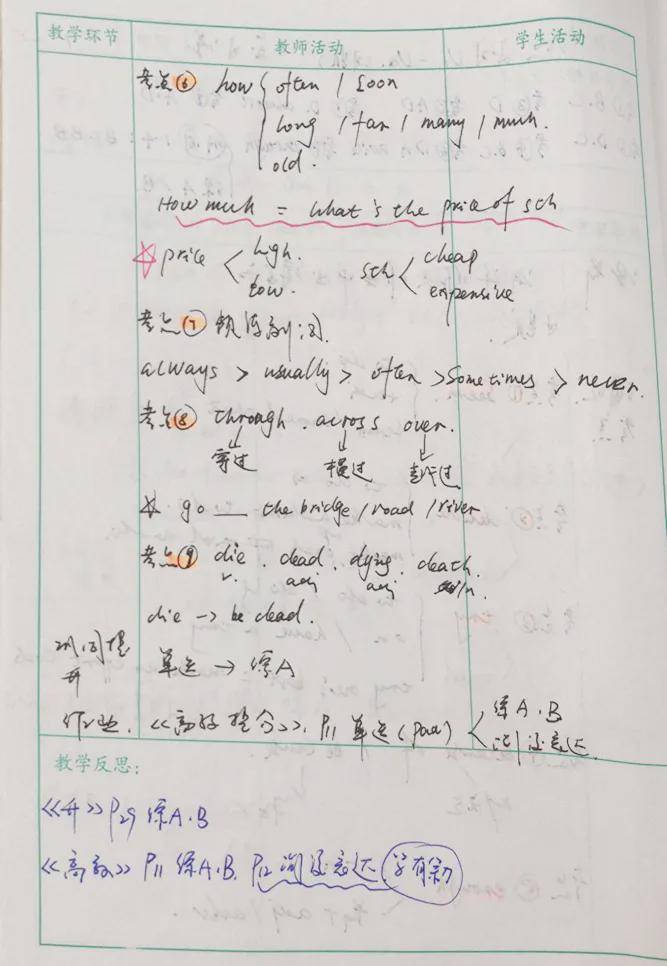 教学环节 教师活动 学生活动
考点⑥ how often / soon
long / far / many / much.
old.
How much = What's the price of sth
☆ price high. sth cheap
low. expensive
考点⑦ 频度副词.
always > usually > often > sometimes > never.
考点⑧ through . across over.
穿过 横过 越过
☆ go __ the bridge / road / river
考点⑨ die . dead . dying . death.
v. adj adj n.
die → be dead.
巩固提
升 单选 → 综A
作业. 《高效整合》. P11 单选 综A.B
词汇语表达
教学反思:
《升》P29 综A.B
《高效》P11 综A.B. P12 语表达 学有余